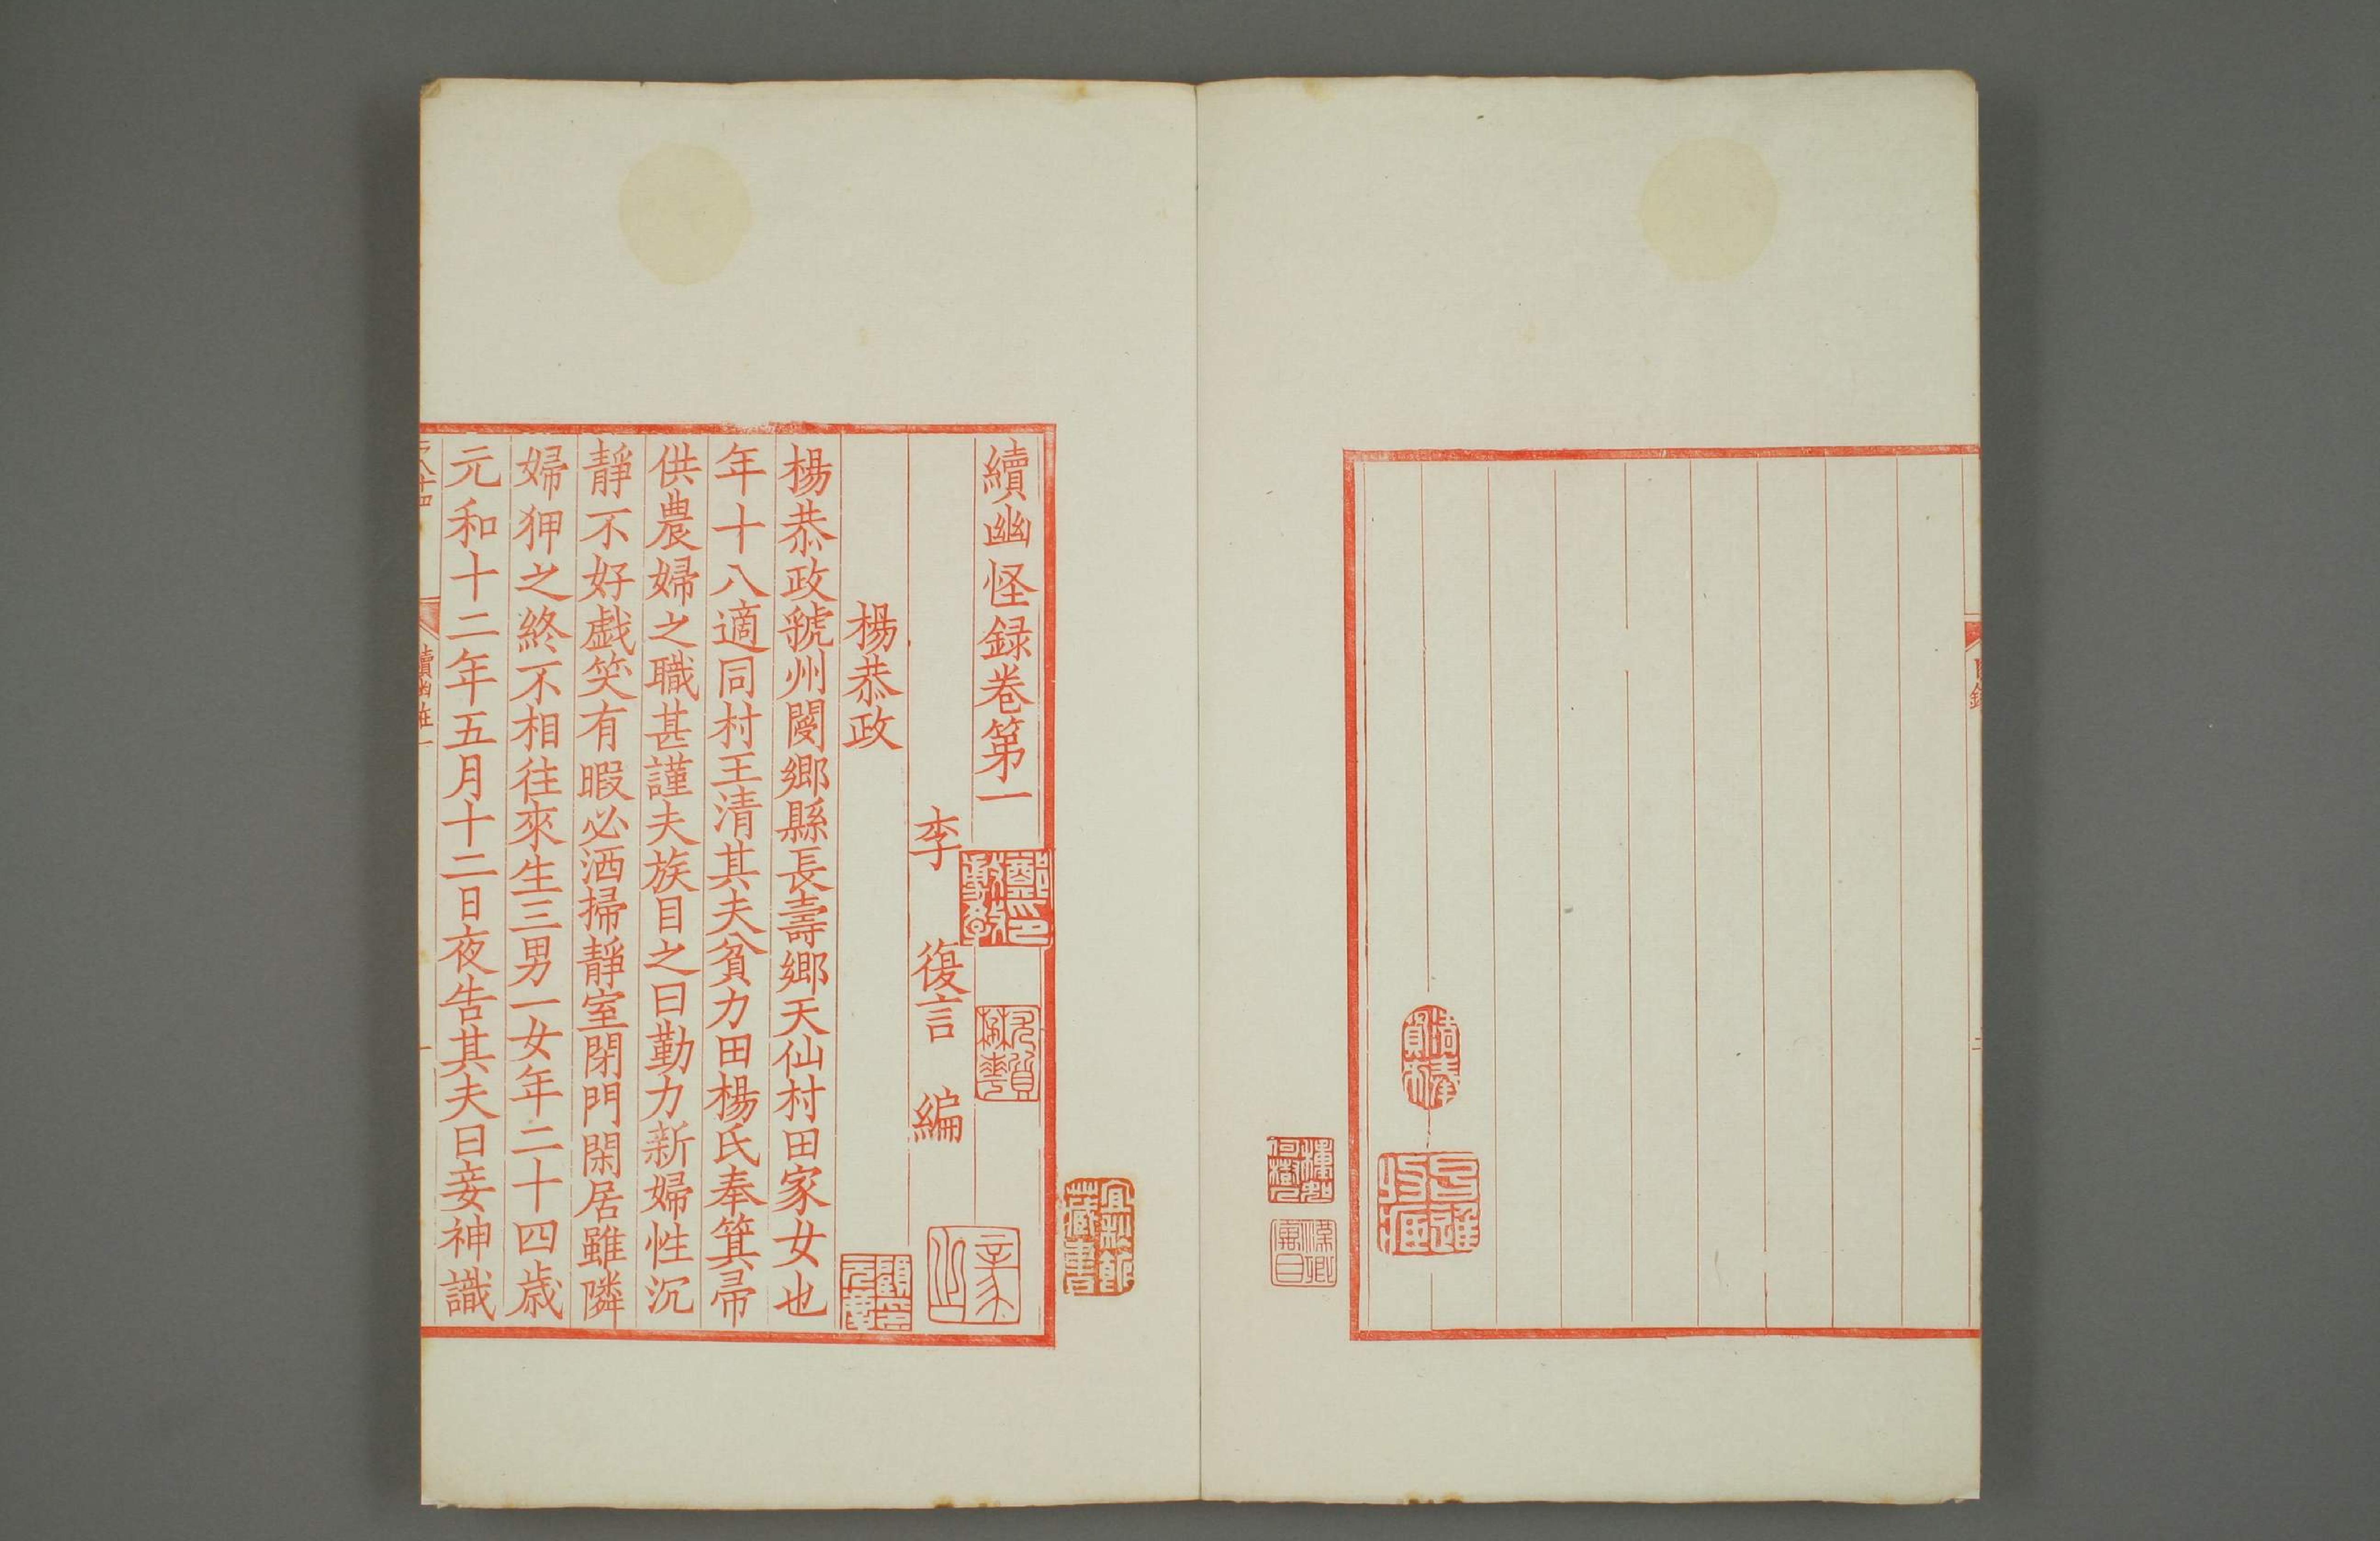 續幽怪録卷第一
李復言編
楊恭政
楊恭政虢州閿鄉縣長壽鄉天仙村田家女也
年十八適同村王清其夫貧力田楊氏奉箕帚
供農婦之職甚謹夫族目之曰勤力新婦性沉
靜不好戯笑有暇必洒掃靜室閉門閑居雖隣
婦狎之終不相往來生三男一女年二十四歳
元和十二年五月十二日夜告其夫曰妾神識
藏書